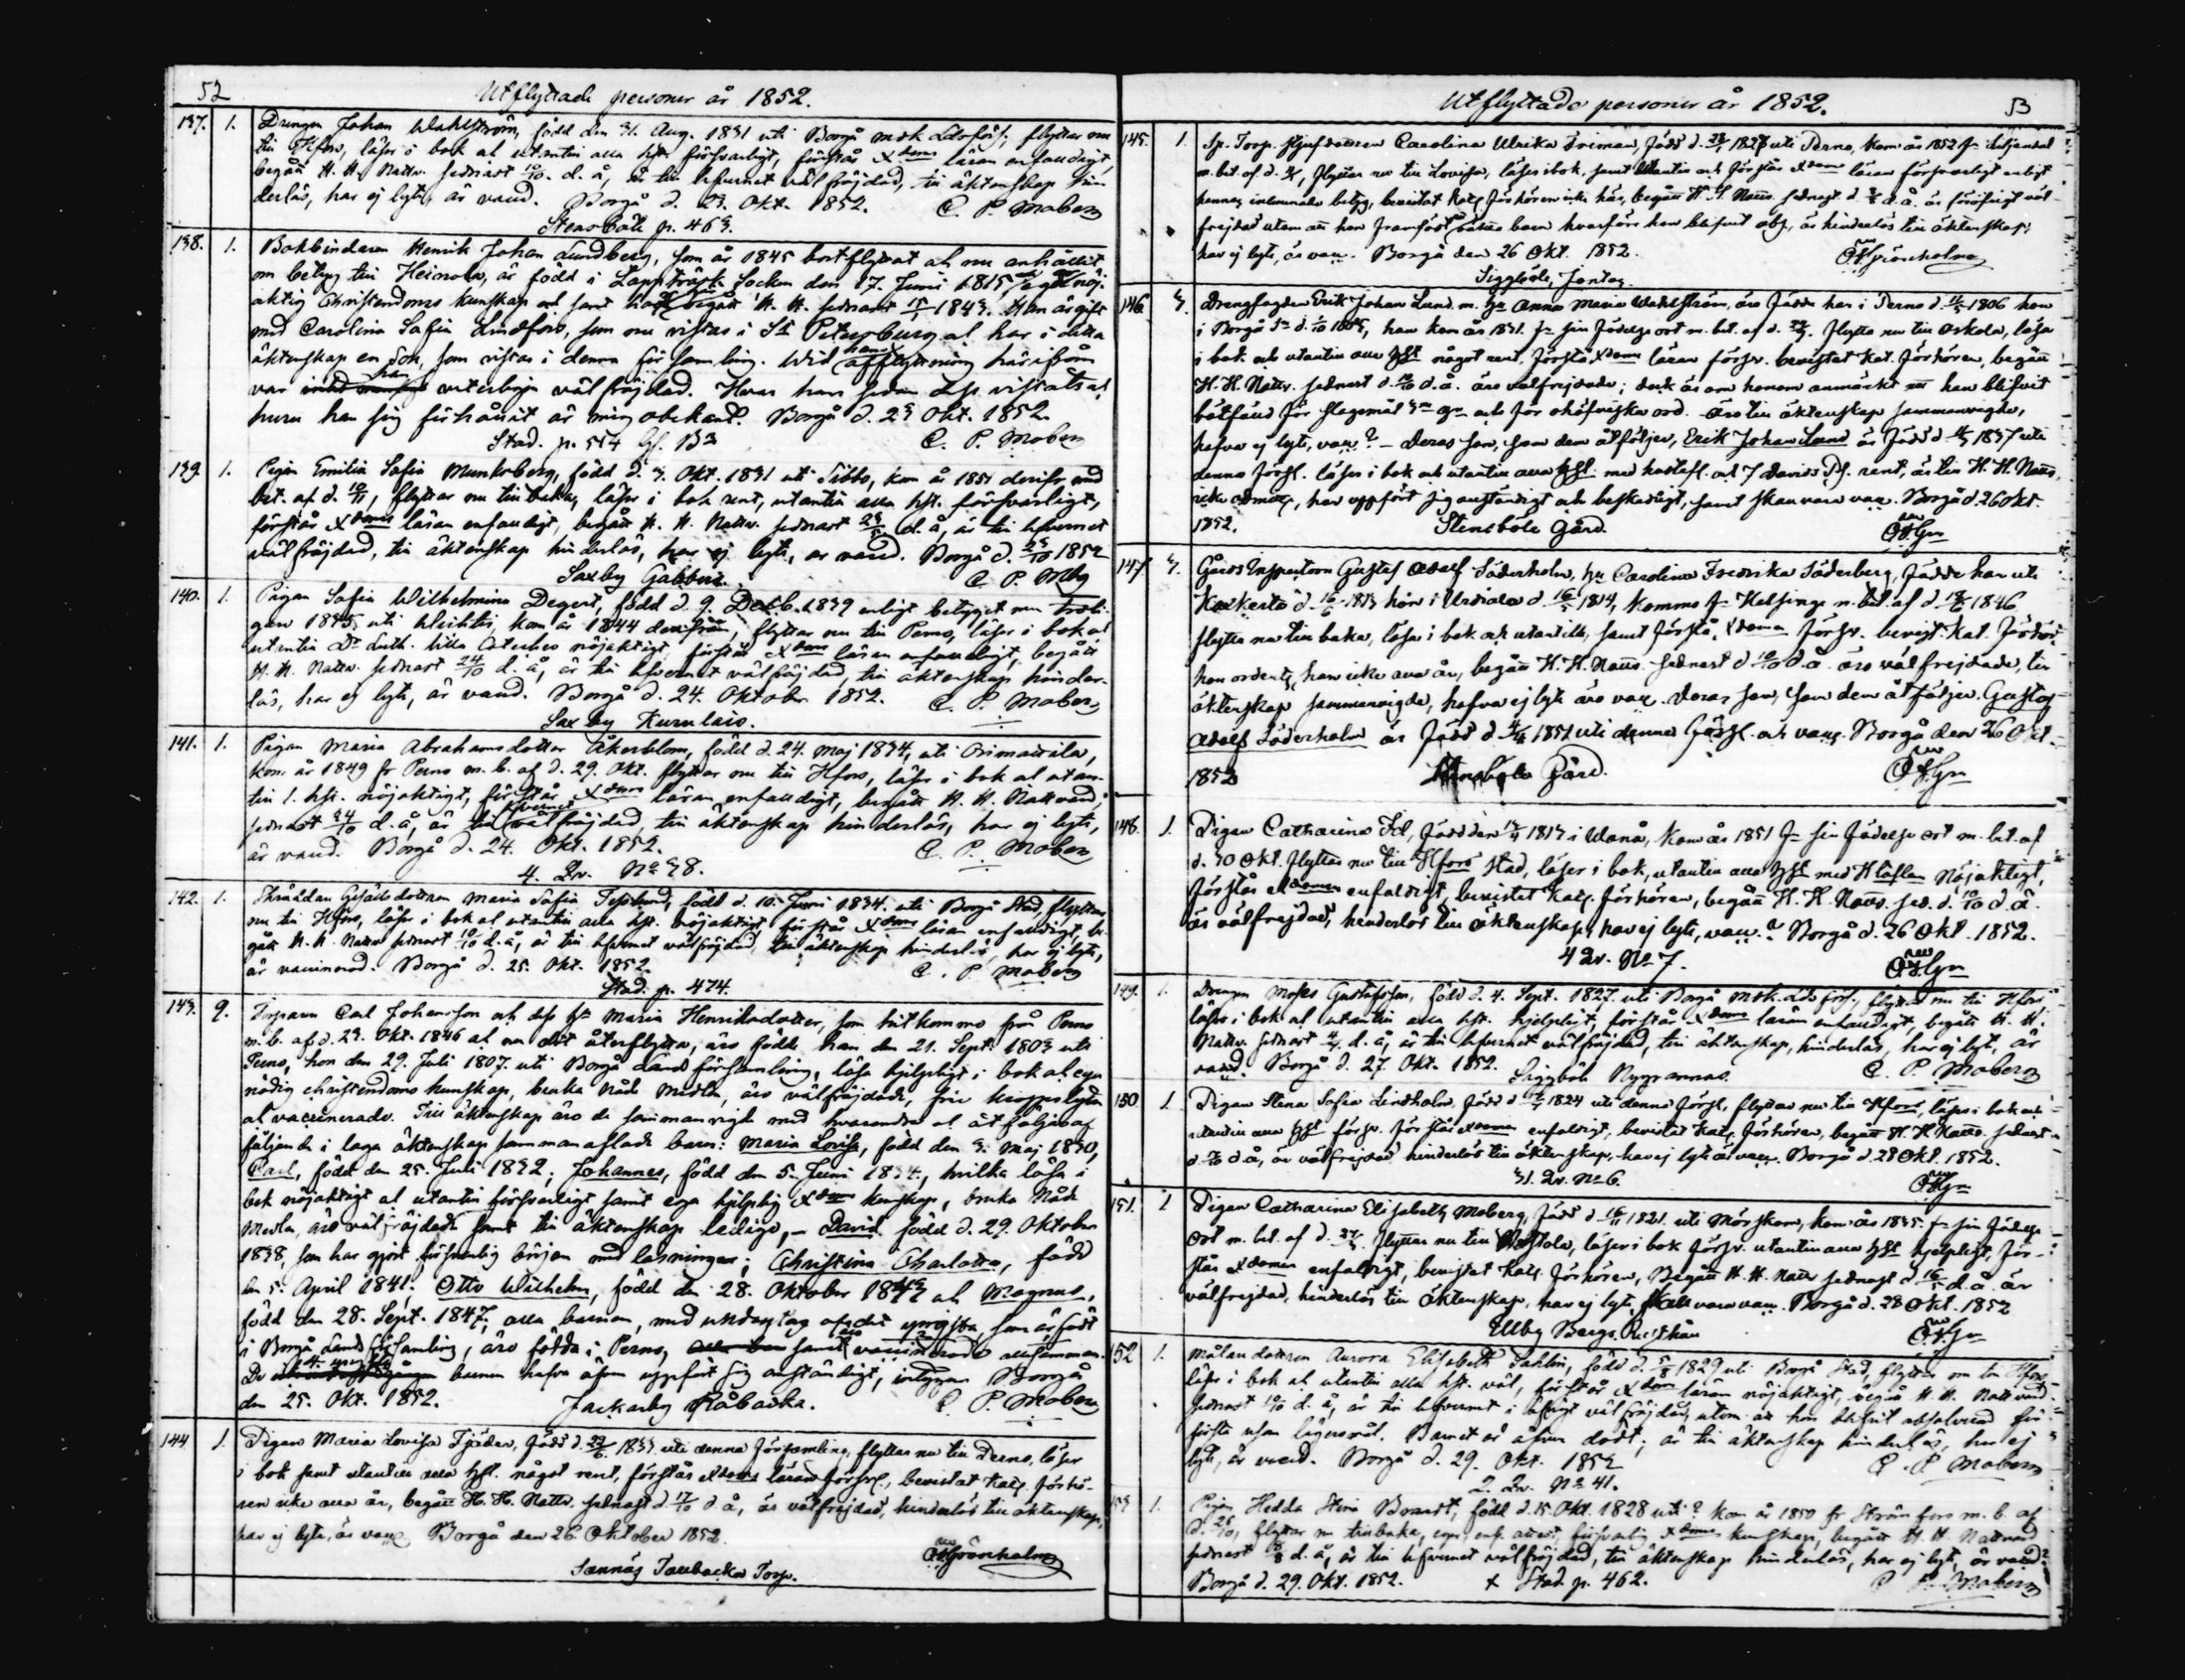 52
Utflyttade personer år 1852.
137. 1. Drengen Johan Wahlström, född den 31. Aug. 1831 uti Borgå flyttar nu
till Hfors, läser i bok och utantill alla hst. försvarligt, förstår Xdoms läran enfaldigt,
begått H. H. Nattv. sednast d. å, är till lefvernet välfräjdad, till äktenskap hin-
derlös, har ej lyte, är vacc. Borgå d. 23. Okt. 1852. C. P. Moberg
Stensböle p. 463.
138. 1. Bokbindaren Henrik Johan Lundberg, som år 1845 bortflyttat och nu anhållit
om betyg till Heinola, är född i Lappträsk Socken den 17. Juni 1815, nöj-
aktig Christendoms kunskap och samt begått H. H. sednast 1843. Han är gift
med Carolina Sofia Lindfors, som nu vistas i St Petersburg och har i detta
äktenskap en Son, som vistas i denna församling. Wid hans afflyttning härifrån
var han veterligen välfräjdad. Hvar han sedan dess vistats och
huru han sig förhållit är mig obekant. Borgå d. 23 Okt. 1852
Stad. p. 554 C. P. Moberg
139. 1. Pigan Emilia Sofia Munksberg, född d. 3. Okt. 1831 uti Sibbo, kom år 1851 derifr. med
bet. af d. flyttar nu tillbaka, läser i bok rent, utantill alla hst. försvarligt,
förstår Xdoms läran enfaldigt, begått H. H. Nattv. sednast d. å, är till lefvernet
välfräjdad, till äktenskap hinderlös, har ej lyte, är vacc. Borgå d. 23/10 1852
Saxby Gabbas. C. P. Mbg
140. 1. Pigan Sofia Wilhelmina Degert, född d. 9. Decb. 1839 enligt betyget men troli-
gen 1835, uti Wichtis, kom år 1844 derifrån, flyttar nu till Perno, läser i bok och
utantill Dr Luth. lilla Cateches nöjaktigt, förstår Xdoms läran enfaldigt, begått
H. H. Nattv. sednast 24/10 d. å, är till lefvernet välfräjdad, till äktenskap hinder-
lös, har ej lyte, är vacc. Borgå d. 24. Oktober 1852. C. P. Moberg
Saxby Kurnlais.
141. 1. Pigan Maria Abrahamsdotter Åkerblom, född d. 24. Maj 1834, uti Orimattila,
kom år 1849 fr Perno m. b. af d. 29. Okt. flyttar nu till Hfors, läser i bok och utan-
till 1. hst. nöjaktigt, förstår Xdoms läran enfaldigt, begått H. H. Nattvard,
sednast 24/10 d. å, är till lefvernet välfräjdad, till äktenskap hinderlös, har ej lyte,
är vacc. Borgå d. 24. Okt. 1852. C. P. Moberg
4. Qv. No 38.
142. 1. född d. 10. Juni 1834. uti Borgå Stad, flyttar
nu till Hfors, läser i bok och utantill alla hst. nöjaktigt, förstår Xdoms läran enfaldigt, be-
gått H. H. Nattv. sednast 10/10 d. å, är till lefvernet välfräjdad, till äktenskap hinderlös, har ej lyte,
är vaccinerad. Borgå d. 25. Okt. 1852. C. P. Moberg
Stad. p. 474.
143. 9. Torparen Carl Johansson och dess hu Maria Henriksdotter, som hitkommo från Perno
m. b. af d. 23. Okt. 1846 och nu dit återflytta, äro födde han den 21. Sept. 1803 uti
Perno, hon den 29. Juli 1807. uti Borgå Landsförsamling, läsa hjelpligt i bok och ega
nödig christendoms kunskap, bruka Nåde Medlen, äro välfräjdade, fria kroppslyten
och vaccinerade. Till äktenskap äro de sammanvigde med hvarandra och åtföljas af
följande i laga äktenskap sammanaflade barn: Maria Lovisa, född den 3. Maj 1830,
Carl, född den 25. Juli 1832; Johannes, född den 5. Juni 1834, hvilka läsa i
bok nöjaktigt och utantill försvarligt samt ega hjelplig Xdoms kunskap, bruka Nåde
Medlen, äro välfräjdade samt till äktenskap ledige, – David född d. 29. Oktober
1838, som har gjort försvarlig början med läsningen; Christina Charlotta, född
den 5. April 1841. Otto Wilhelm, född den 28. Oktober 1843 och Magnus,
född den 28. Sept. 1847, alla barnen, med undantag af det yngsta som är född
i Borgå Landsförsamling, äro födda i Perno, samt vaccinerade allesamman.
De barnen hafva äfven uppfört sig anständigt, intygar Borgå
den 25. Okt. 1852. Jackarby Råbacka. C. P. Moberg
144 1. Pigan Maria Lovisa Fjäder, född d. uti denna Församling, flyttar nu till Perno, läser
i bok samt utantill alla hst. något rent, förstår Xdoms läran försv., bevistat Kat. förhö-
ren icke alla år, begått H. H. Nattv. sednast d. 17/10 d å, är välfrejdad, hinderlös till äktenskap,
har ej lyte, är vacc. Borgå den 26 Oktober 1852.
Sannäs Torp.
Utflyttade personer år 1852.
53
145. 1. Carolina Ulrika född d. 1827 uti Perno, kom år 1852
flyttar nu till Lovisa, läser i bok, samt utantill och förstår Xdoms läran försvarligt enligt
är hinderlös till äktenskap,
har ej lyte, är vacc. Borgå den 26 Okt. 1852.
Siggböle, Jontas.
146. 3. Drengfogden Erik Johan Lund m. hu Anna Maria Wahlström, äro födde han i Perno d. 1806 hon
i Borgå han kom år 1831. fr sin födelse ort m. bet. af d. flytta nu till Askola, läsa
i bok och utantill alla hst något rent, förstå Xdoms läran försv. bevistat Kat. förhören, begått
H. H. Nattv. sednast d. d. å. äro välfrejdade; dock är om honom anmärkt att han blifvit
bötfälld för slagsmål och för ohöfviska ord. Äro till äktenskap sammanvigde,
hafva ej lyte, vacc.? – Deras son, som dem åtföljer, Erik Johan Lund är född d 1837 uti
denna förs. läser i bok och utantill alla hst. med hustafl. och 7 Davids Ps. rent, är till H. H. Nattv.
icke admitt., har uppfört sig anständigt och beskedligt, samt skall vara vacc. Borgå d. 26 Okt.
1852. Stensböle Gård.
147. 3. Gårds Inspektorn Gustaf Adolf Söderholm, hu Carolina Fredrika Söderberg, födde han uti
d. 1813 hon i Urdiala d 1814, kommo fr Helsinge m. bet. af d 1846
flytta nu tillbaka, läsa i bok och utantill, samt förstå Xdomen försv. bevist. Kat. förhör,
hon ordentl., han icke alla år, begått H. H. Nattv. sednast d 10/10 d. å. äro välfrejdade, till
äktenskap sammanvigde, hafva ej lyte äro vacc. Deras son, som dem åtföljer, Gustaf
Adolf Söderholm är född d. 1851 uti denna Förs. och vacc. Borgå den 26 Okt.
1852 Stensböle Gård.
148. 1. Pigan Catharina Fcl, född den 1813 i Wånå, kom år 1851 fr sin födelse ort m. bet. af
d. 30 Okt. flyttar nu till Hfors stad, läser i bok, utantill alla hst med H taflan nöjaktigt,
förstår Xdomen enfaldigt, bevistat Kat. förhören, begått H. H. Nattv. sed. d. 10/10 d. å.
är välfrejdad, hinderlös till äktenskap, har ej lyte, vacc.? Borgå d. 26 Okt. 1852.
4 Qv. No 7.
149. 1. Drengen Moses Gustafsson, född d. 4. Sept. 1827. uti Borgå flyttar nu till Hfors
läser i bok och utantill alla hst. hjelpligt, förstår Xdoms läran enfaldigt, begått H. H.
Nattv. sednast d. å, är till lefvernet välfräjdad, till äktenskap, hinderlös, har ej lyte, är
vacc. Borgå d. 27. Okt. 1852. Siggböle Nygrannas. C. P. Moberg
150 1. Pigan Stena Sofia Lindholm, född d 1824 uti denna förs., flyttar nu till Hfors, läser i bok och
utantill alla hst försv. förstår Xdomen enfaldigt, bevistat Kat. förhören, begått H. H. Nattv. sednast
d d å, är välfrejdad, hinderlös till äktenskap, har ej lyte är vacc. Borgå d. 28 Okt. 1852.
31. Qv. No 6.
151. 1 Pigan Catharina Elisabeth Moberg, född d 1821. uti Mörskom, kom år 1835. fr sin födelse
ort m. bet. af d. flyttar nu till läser i bok försv. utantill alla hst hjelpligt, för-
står Xdomen enfaldigt, bevistat Kat. förhören, Begått H. H. Nattv sednast d. d. å. är
välfrejdad, hinderlös till äktenskap, har ej lyte, skall vara vacc. Borgå d. 28 Okt. 1852
Ellby Bergs
152 1. Aurora Elisabeth Sahlin, född d. 1829 uti Borgå Stad, flyttar nu till Hfors
läser i bok och utantill alla hst. väl, förstår Xdoms läran nöjaktigt, begått H. H. Nattvard
sednast 10/10 d. å, är till lefvernet i öfrigt välfräjdad, utom att hon blifvit absolverad för
första resan lägersmål. Barnet är äfven dödt; är till äktenskap hinderlös, har ej
lyte, är vacc. Borgå d. 29. Okt. 1852 C. P. Moberg
2. Qv. No 41.
153 1. Pigan Hedda Stina Brandt, född d. 15. Okt. 1828 uti? kom år 1850 fr Strömfors m. b. af
d. flyttar nu tillbaka, försvarlig Xdoms kunskap, begått H. H. Nattvard
sednast d. å, är till lefvernet välfräjdad, till äktenskap hinderlös, har ej lyte, är vacc?
Borgå d. 29. Okt. 1852. + Stad p. 462. C. P. Moberg